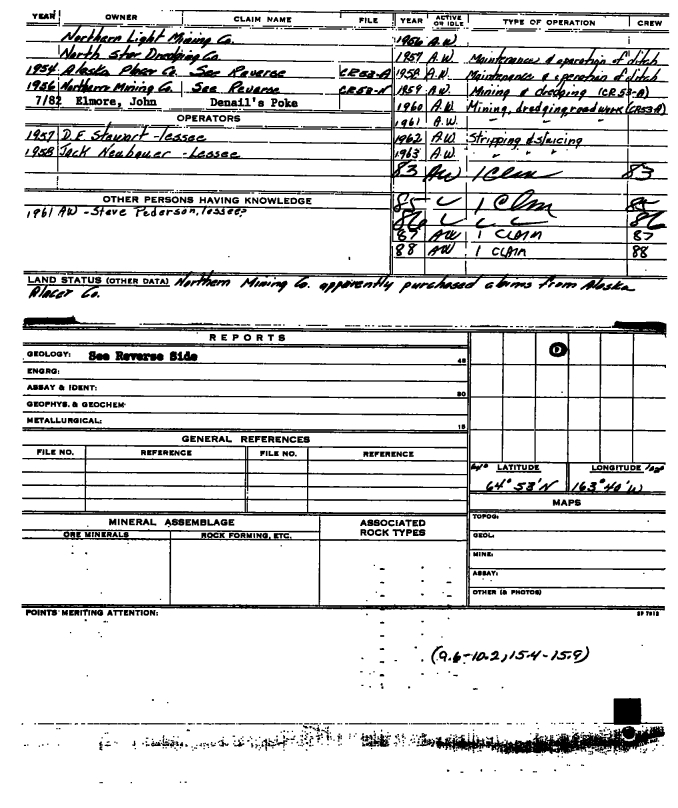 YEAR OWNER CLAIM NAME FILE YEAR ACTIVE OR IDLE TYPE OF OPERATION CREW
Northern Light Mining Co. 1956 A.W.
North Star Dredging Co. 1957 A.W. Maintenance & operation of ditch
1954 Alaska Placer Co. See Reverse CR53-A 1958 A.W. Maintenance & operation of ditch
1956 Northern Mining Co. See Reverse CR53-N 1959 A.W. Mining & dredging (CR53-A)
7/82 Elmore, John Denail's Poke 1960 A.W. Mining, dredging, road work (CR53A)
OPERATORS 1961 A.W. " "
1957 D.E. Stewart - lessee 1962 A.W. Stripping & sluicing
1958 Jack Neubauer - Lessee 1963 A.W. " " "
83 AW 1 Clm 83
OTHER PERSONS HAVING KNOWLEDGE 85 1 Clm 85
1961 AW - Steve Pederson, lessee? 86 86
87 AW 1 CLAIM 87
88 AW 1 CLAIM 88
LAND STATUS (OTHER DATA) Northern Mining Co. apparently purchased claims from Alaska
Placer Co.
REPORTS
GEOLOGY: See Reverse Side 45
D
ENGRG:
ASSAY & IDENT: 30
GEOPHYS. & GEOCHEM
METALLURGICAL: 15
GENERAL REFERENCES
FILE NO. REFERENCE FILE NO. REFERENCE
LATITUDE LONGITUDE
64° 53'N 163° 40'W
MAPS
MINERAL ASSEMBLAGE ASSOCIATED ROCK TYPES
ORE MINERALS ROCK FORMING, ETC.
TOPOG:
GEOL:
MINE:
ASSAY:
OTHER (& PHOTOS)
POINTS MERITING ATTENTION:
(9.6-10.2, 15.4-15.9)